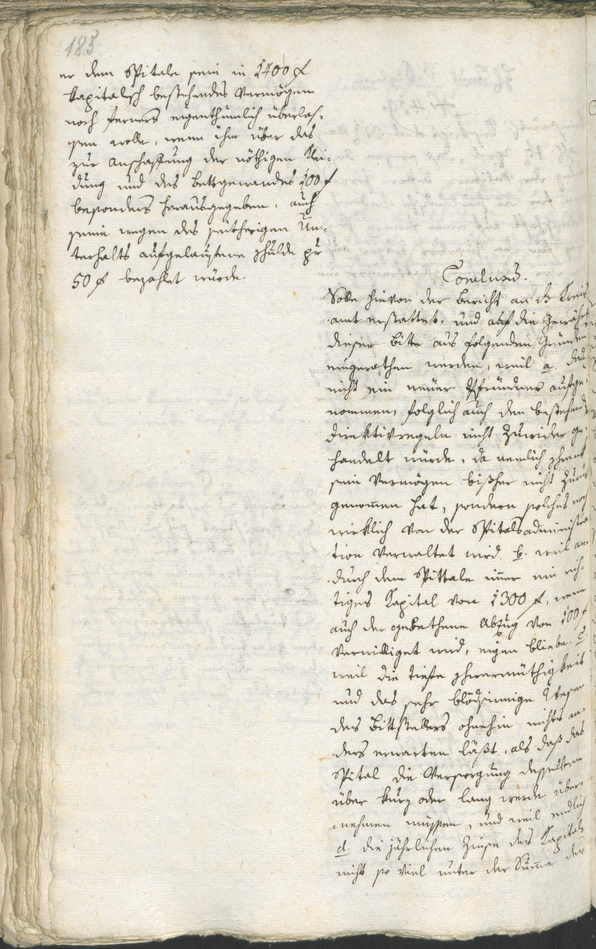 185
er dem Spitale sein in 1400 f
Kapitalisch bestehendes Vermögen
noch ferners eigenthümlich überlas-
sen wolle, wenn ihm über das
zur Anschaffung der nöthigen Klei-
dung und des Bettgewandes 100 f
besonders herausgegeben, auch
seine wegen des seitherigen Un-
terhalts aufgelaufene Schulde pr
50 f bezahlet würde.
Conclusum.
Solle hievon der Bericht an das Kreis
amt erstattet, und auf die Gewähr
dieser Bitte aus folgenden Gründen
eingerathen werden, weil a.
nicht ein neuer Pfründner aufge
nommen, folglich auch den bestehend
Direktivregeln nicht zuwider ge
handelt würde, da nemlich
sein Vermögen bisher nicht zurück
genommen hat, sondern solches noch
wirklich von der Spitalsadministra
tion verwaltet wird. b. weil an
durch dem Spittale immer ein rich-
tiges Kapital von 1300 f, wenn
auch der gebethene Abzug von 100 f
verwilliget wird, eigen bliebe. c.
weil die tiefe Schwermüthigkeit
und das sehr blödsinnige Wesen
des Bittstellers ohnehin nichts an-
ders erwarten läßt, als daß das
Spital die Versorgung desselben
über kurz oder lang werde über
nehmen müssen, und weil endlich
d. die jährlichen Zinse des Kapitals
nicht so viel unter der Summe der